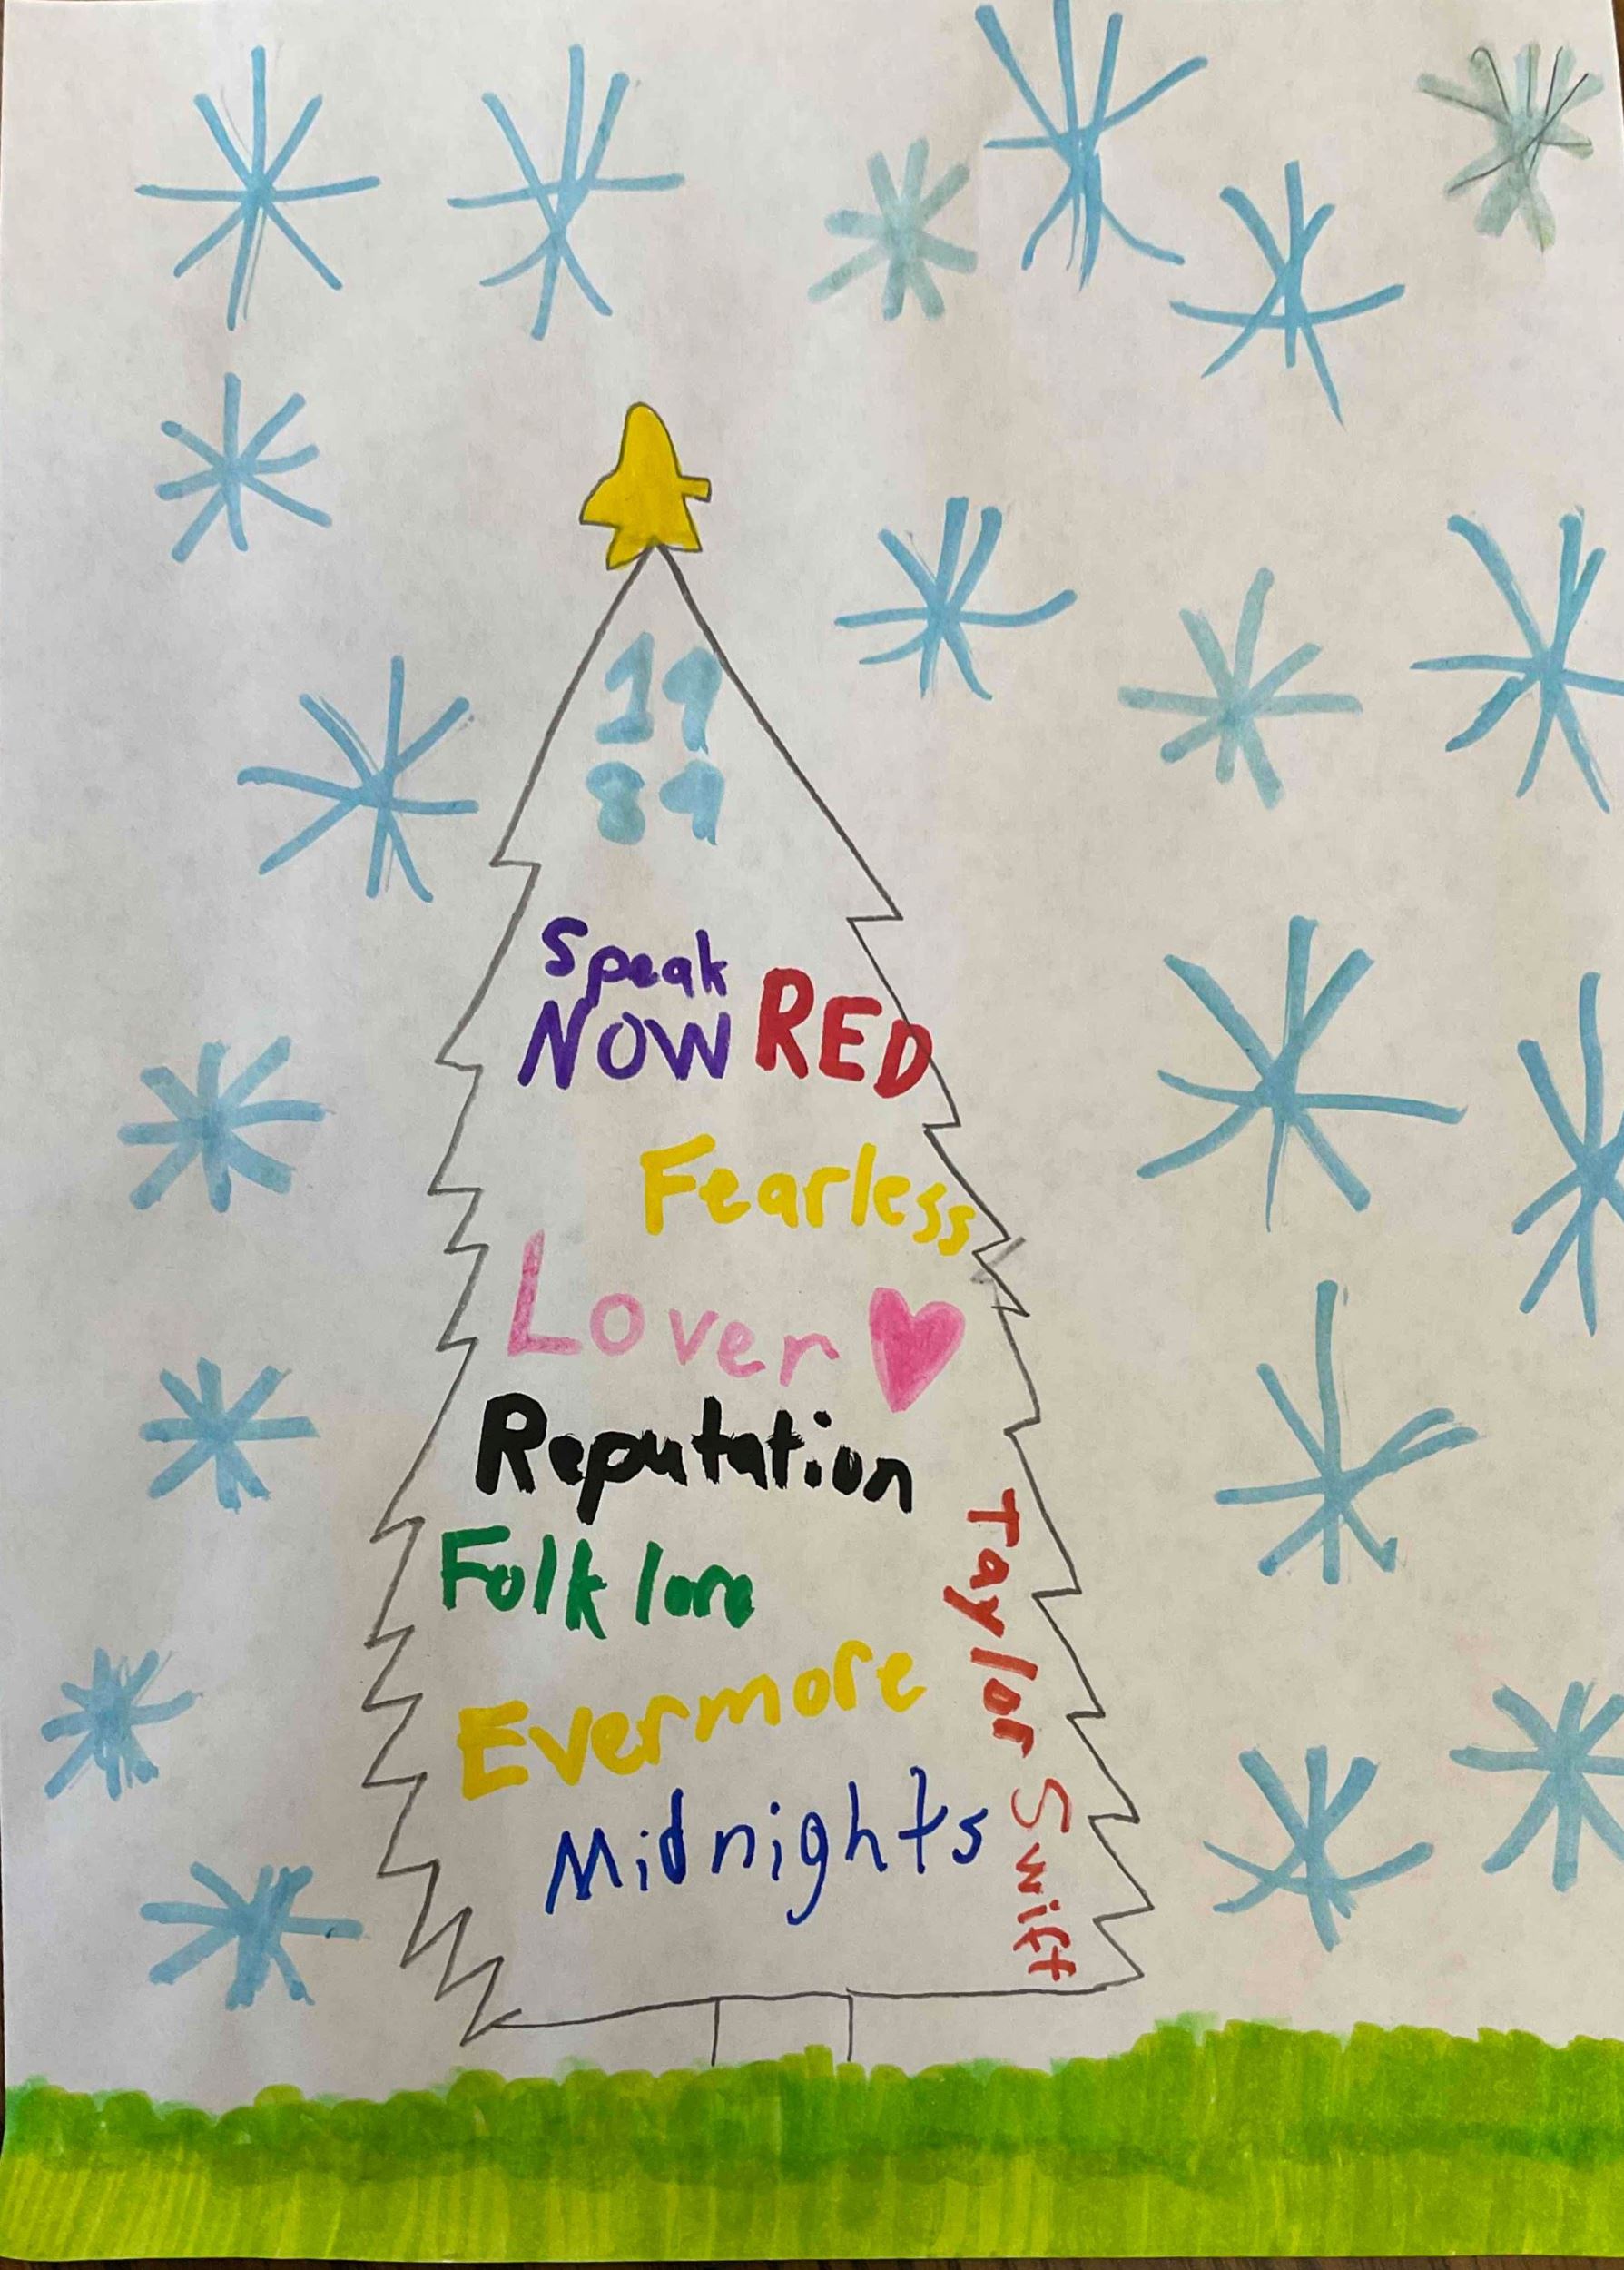 19
89
Speak
NOW RED
Fearless
Lover
Reputation
Folklore
Evermore
Midnights
Taylor Swift